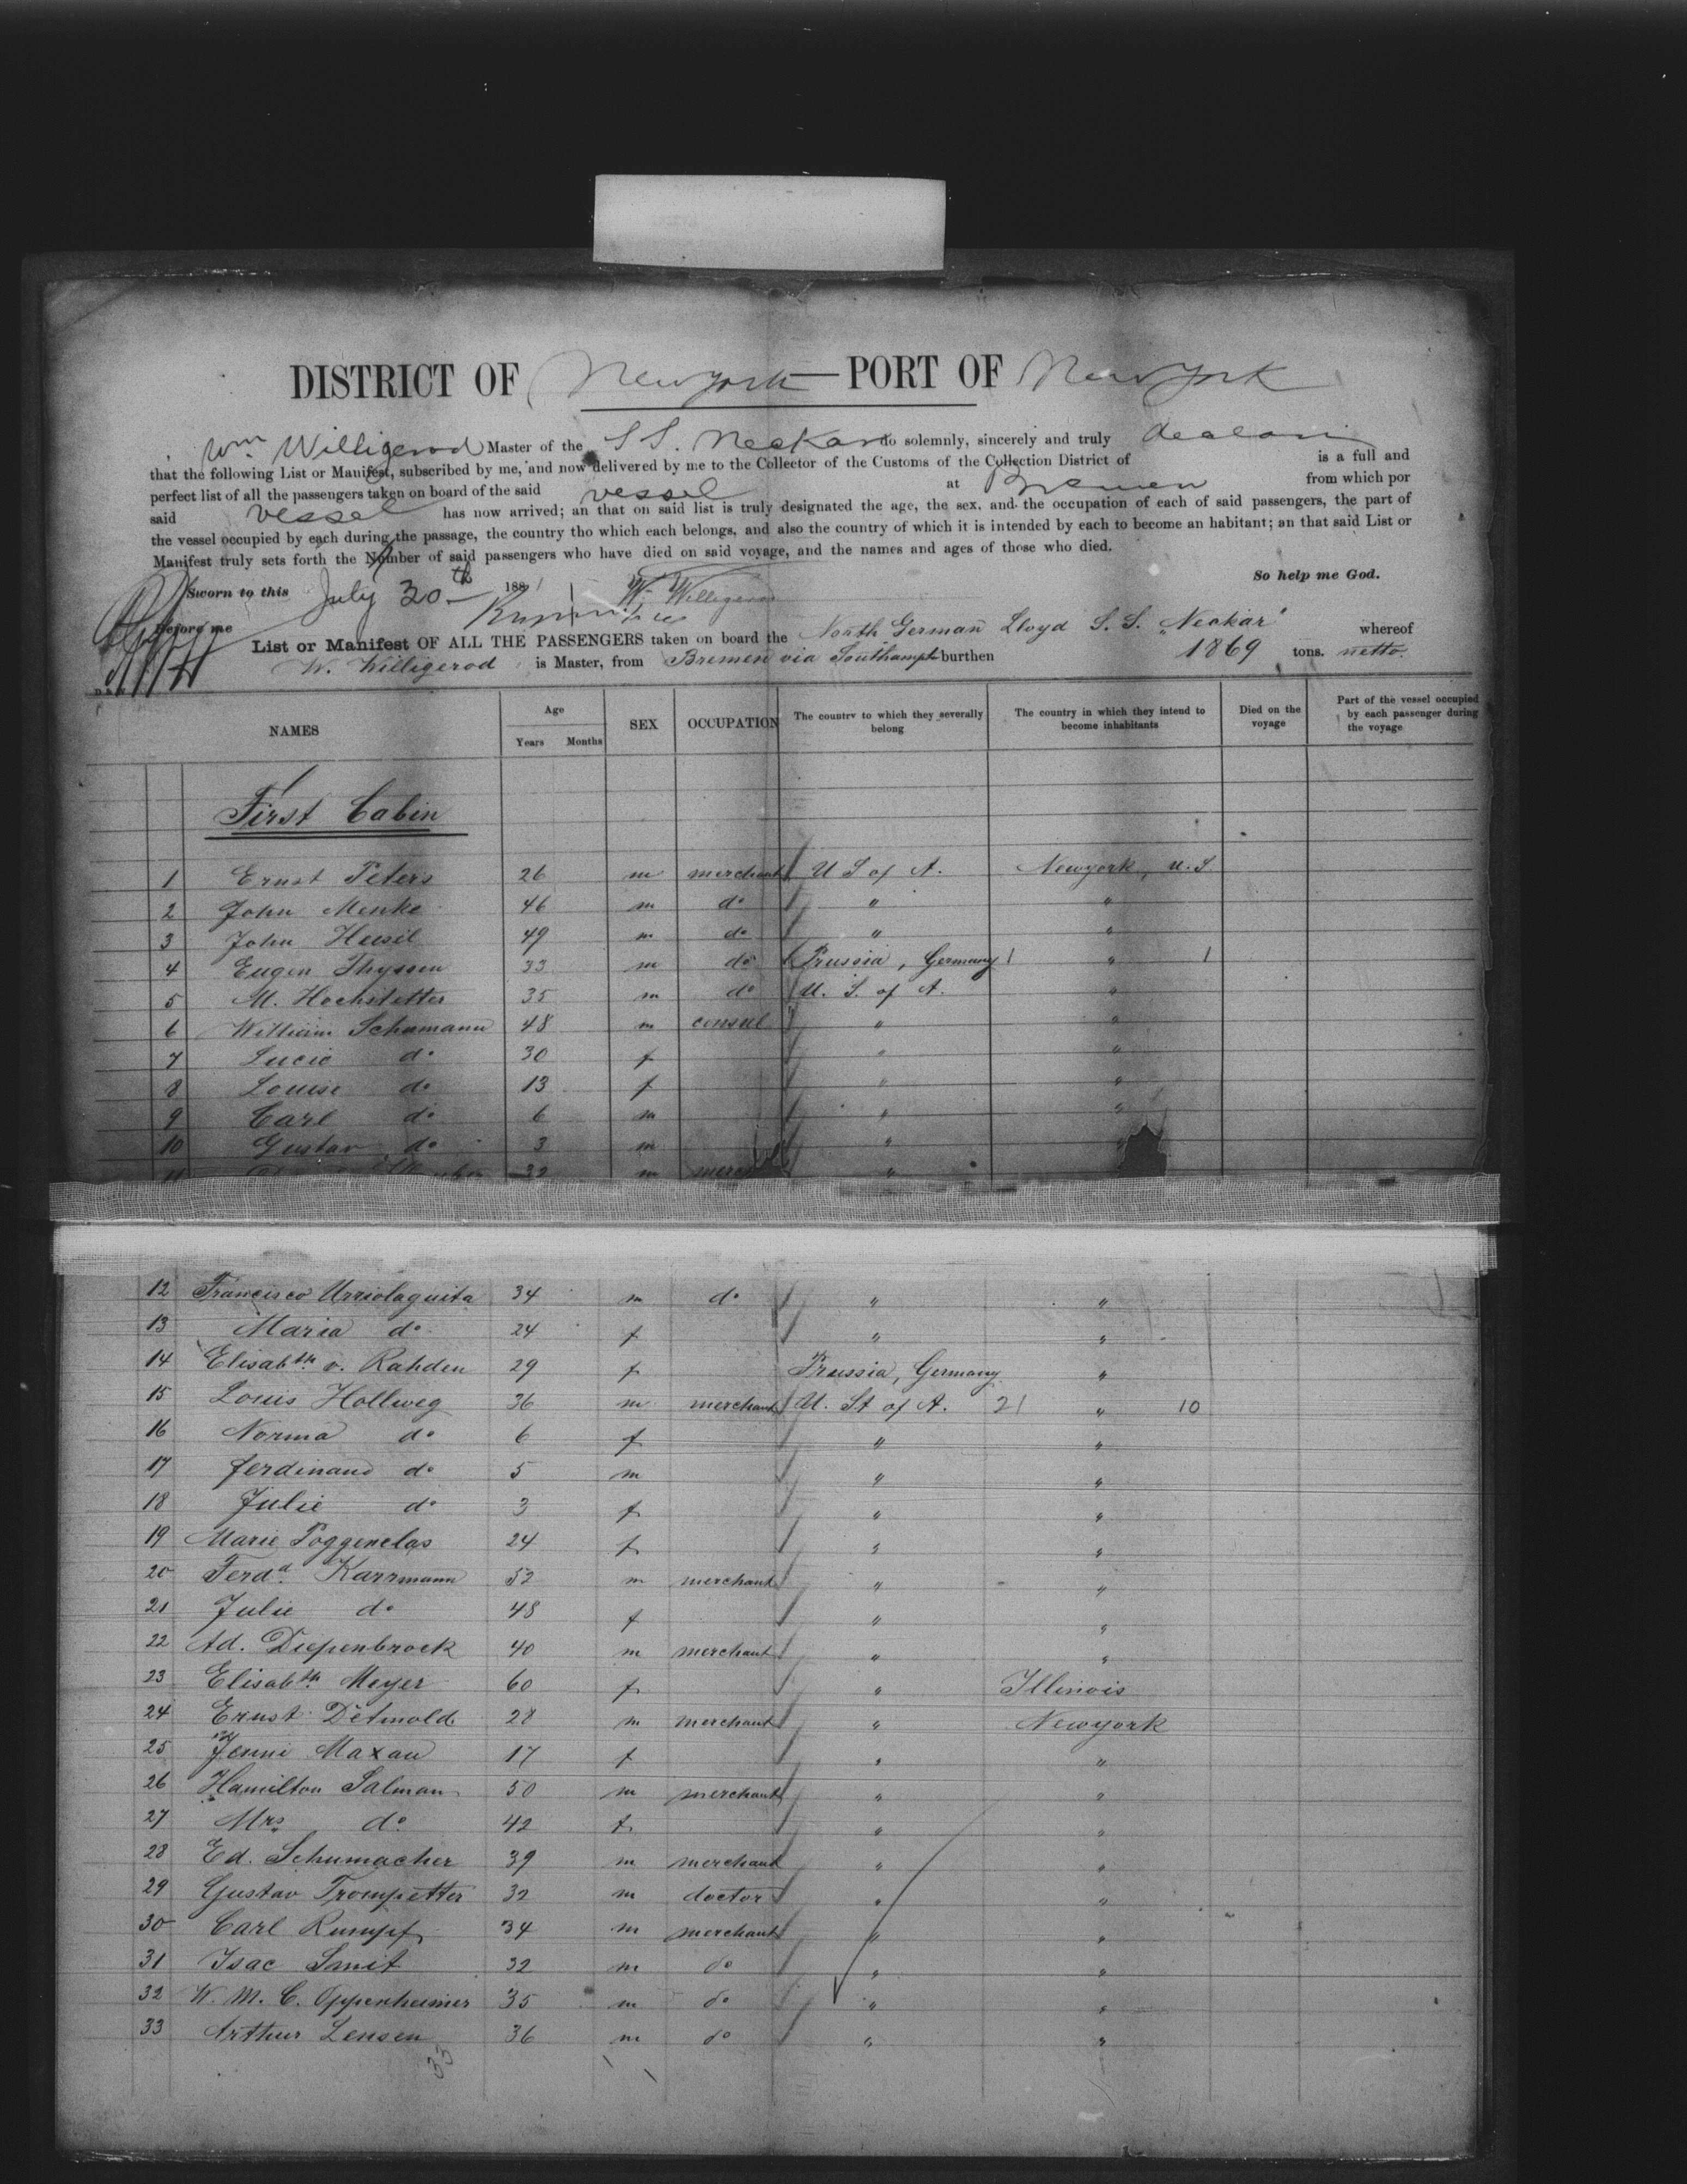 DISTRICT OF Newyork PORT OF New York
Wm Willigerod Master of the S S. Neckar do solemnly, sincerely and truly
that the following List or Manifest, subscribed by me, and now delivered by me to the Collector of the Customs of the Collection District of is a full and
perfect list of all the passengers taken on board of the said vessel at Bremen from which por
said vessel has now arrived; an that on said list is truly designated the age, the sex, and the occupation of each of said passengers, the part of
the vessel occupied by each during the passage, the country tho which each belongs, and also the country of which it is intended by each to become an habitant; an that said List or
Manifest truly sets forth the Number of said passengers who have died on said voyage, and the names and ages of those who died.
So help me God.
Sworn to this July 30th 1881 W. Willigerod
Before me
List or Manifest OF ALL THE PASSENGERS taken on board the North German Lloyd S. S. "Neckar" whereof
W. Willigerod is Master, from Bremen via Southampt burthen 1869 tons. netto.
NAMES Age Years Months SEX OCCUPATION The country to which they severally belong The country in which they intend to become inhabitants Died on the voyage Part of the vessel occupied by each passenger during the voyage
First Cabin
1 Ernst Peters 26 m merchant U S of A. Newyork, U.S
2 John Menke 46 m do " "
3 John Heusil 49 m do " "
4 Eugen Thyssen 33 m do Prussia, Germany 1 " 1
5 M. Hochstetter 35 m do U. S. of A. "
6 William Schumann 48 m consul " "
7 Lucie do 30 f " "
8 Louise do 13 f " "
9 Carl do 6 m " "
10 Gustav do 3 m " "
11 32 m "
12 Francisco Urriolaguita 34 m do " "
13 Maria do 24 f " "
14 Elisabth v. Rahden 29 f Prussia, Germany "
15 Louis Hollweg 36 m merchant U. St of A. 21 " 10
16 Norma do 6 f " "
17 Ferdinand do 5 m " "
18 Julie do 3 f " "
19 Marie Poggenclas 24 f " "
20 Ferdd. Karrmann 52 m merchant " "
21 Julie do 48 f " "
22 Ad. Diepenbrock 40 m merchant " "
23 Elisabth Meyer 60 f " Illinois
24 Ernst Detmold 28 m merchant " Newyork
25 Jenni Maxau 17 f " "
26 Hamilton Salman 50 m merchant " "
27 Mrs do 42 f " "
28 Ed. Schumacher 39 m merchant " "
29 Gustav Trompetter 32 m doctor " "
30 Carl Rumpf 34 m merchant " "
31 Isac Smit 32 m do " "
32 W. M. C. Oppenheimer 35 m do " "
33 Arthur Lensen 36 m do " "
33